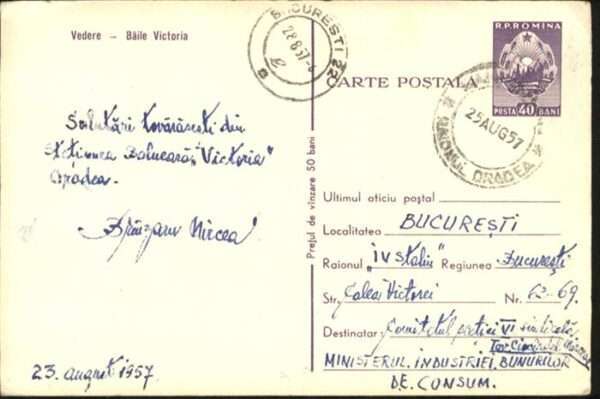 Vedere – Băile Victoria
BUCUREȘTI 22
28.8.57
R.P.ROMINA
CARTE POSTALA
POSTA 40 BANI
25 AUG 57
RAIONUL ORADEA
Salutări tovărășești din
Stațiunea Balneară "Victoria"
Oradea.
Brînzaru Mircea
23. august 1957
Prețul de vînzare 50 bani
Ultimul oficiu poștal
Localitatea BUCUREȘTI
Raionul "I V Stalin" Regiunea București
Str. Calea Victoriei Nr. 62-69.
Destinatar Comitetul secției VI sindicală
MINISTERUL INDUSTRIEI BUNURILOR
DE CONSUM.